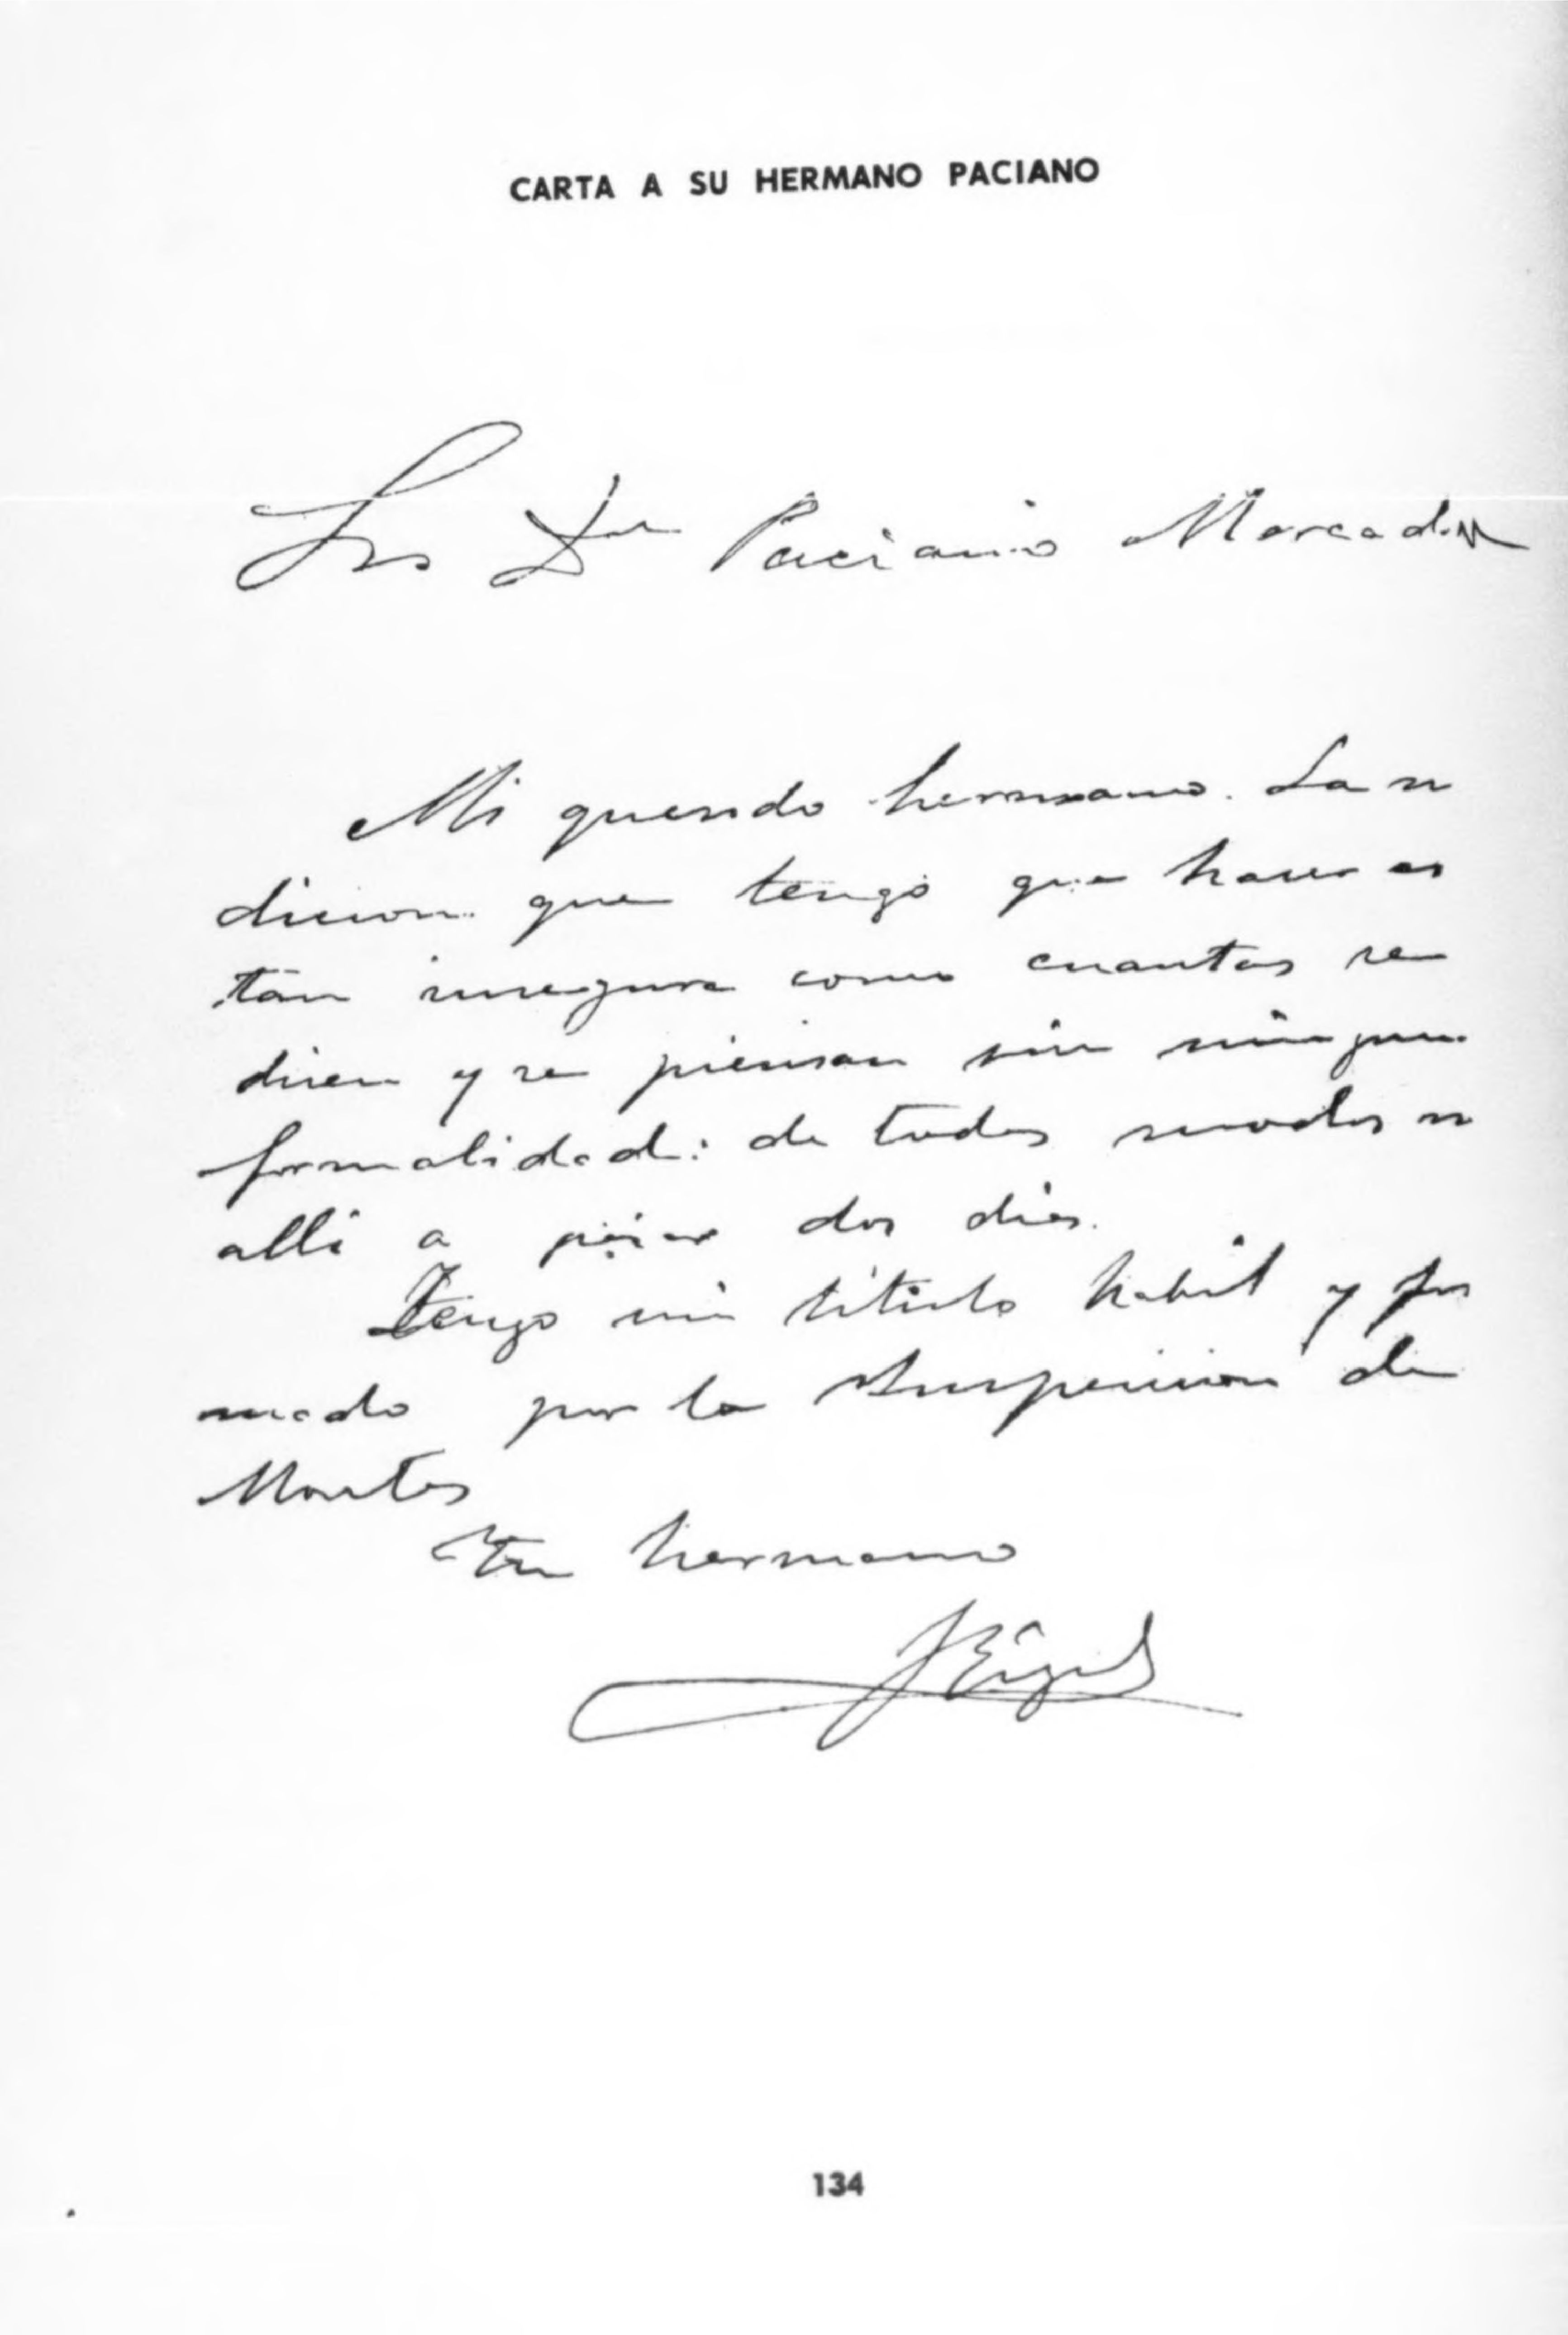 CARTA A SU HERMANO PACIANO
Sr Dn Paciano Mercado
Mi querido hermano. La
dicion que tengo que hacer es
tan insegura como cuantas se
dicen y se piensan sin ninguna
formalidad: de todos modos
alli a pasar dos dias.
Tengo mi titulo habil y for
mado por la Inspeccion de
Montes
Tu hermano
J Rizal
134